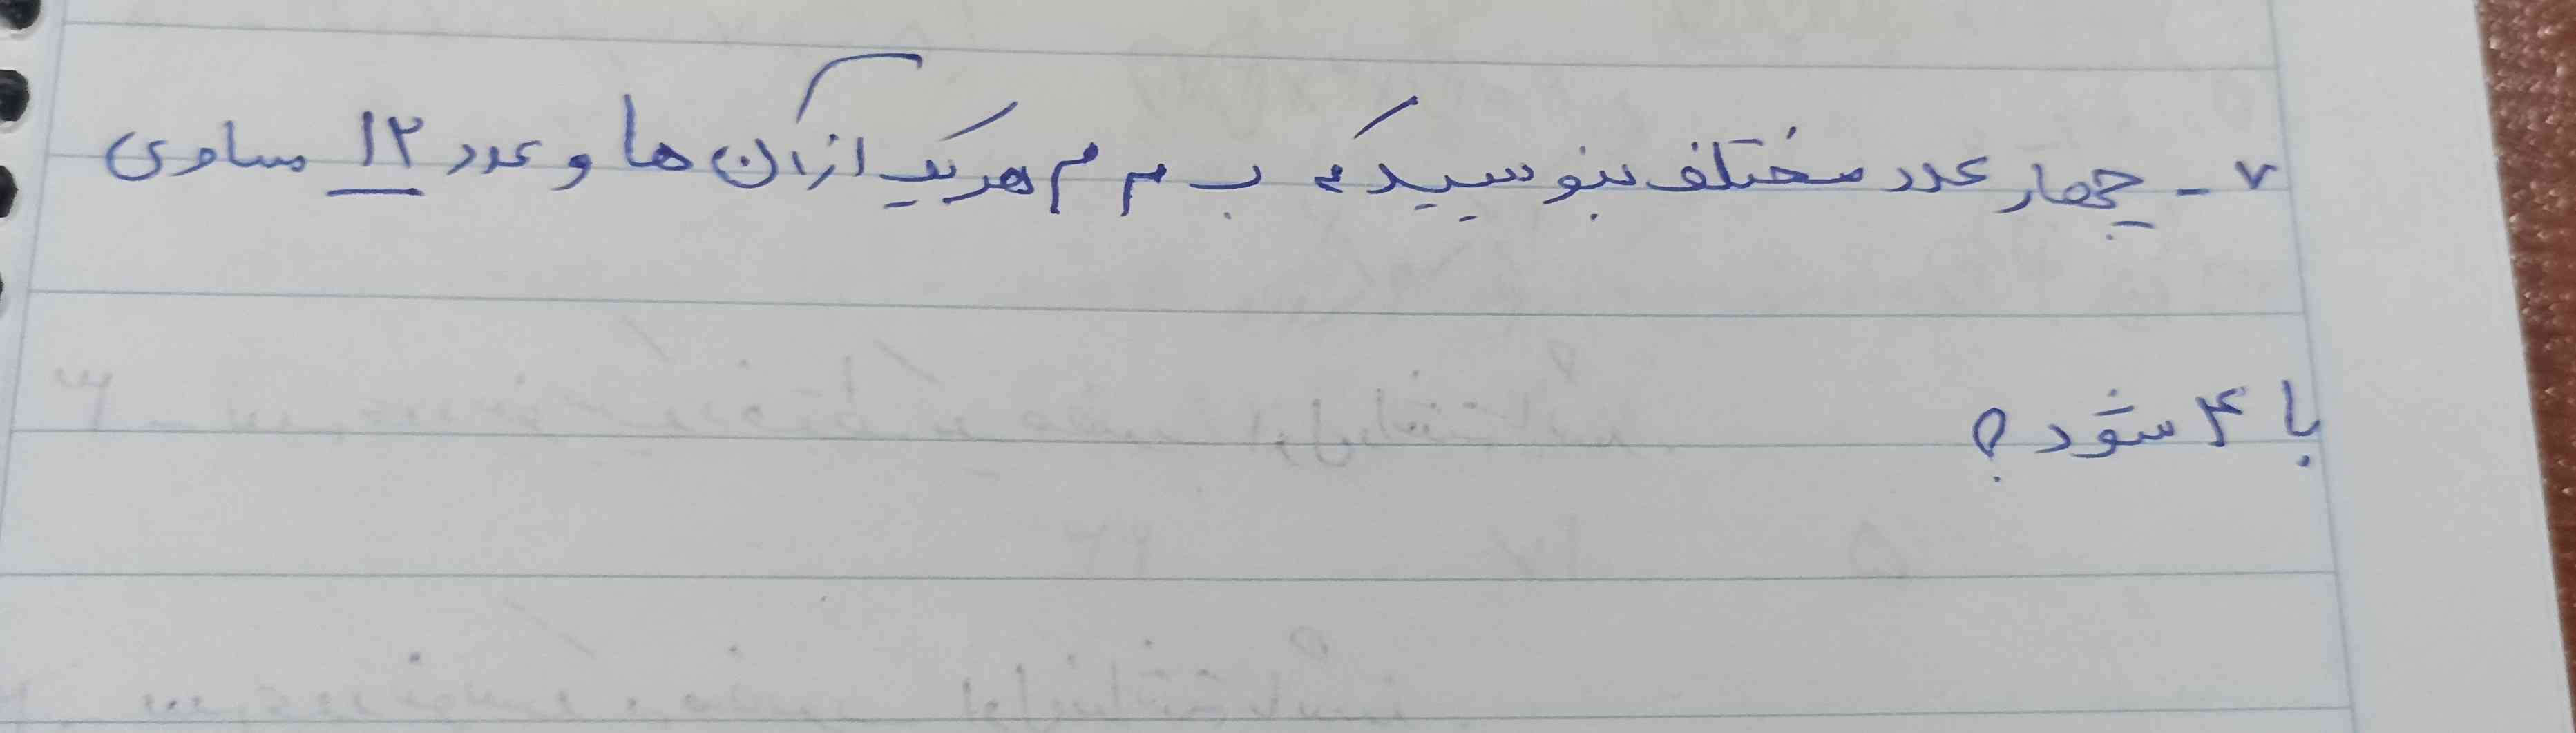 ۷ - چهار عدد مختلف بنویسید که ب م م هریک از آن ها و عدد ۱۲ مساوی
با ۴ شود ؟